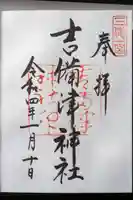 奉拝
吉備津神社
令和四年一月十日